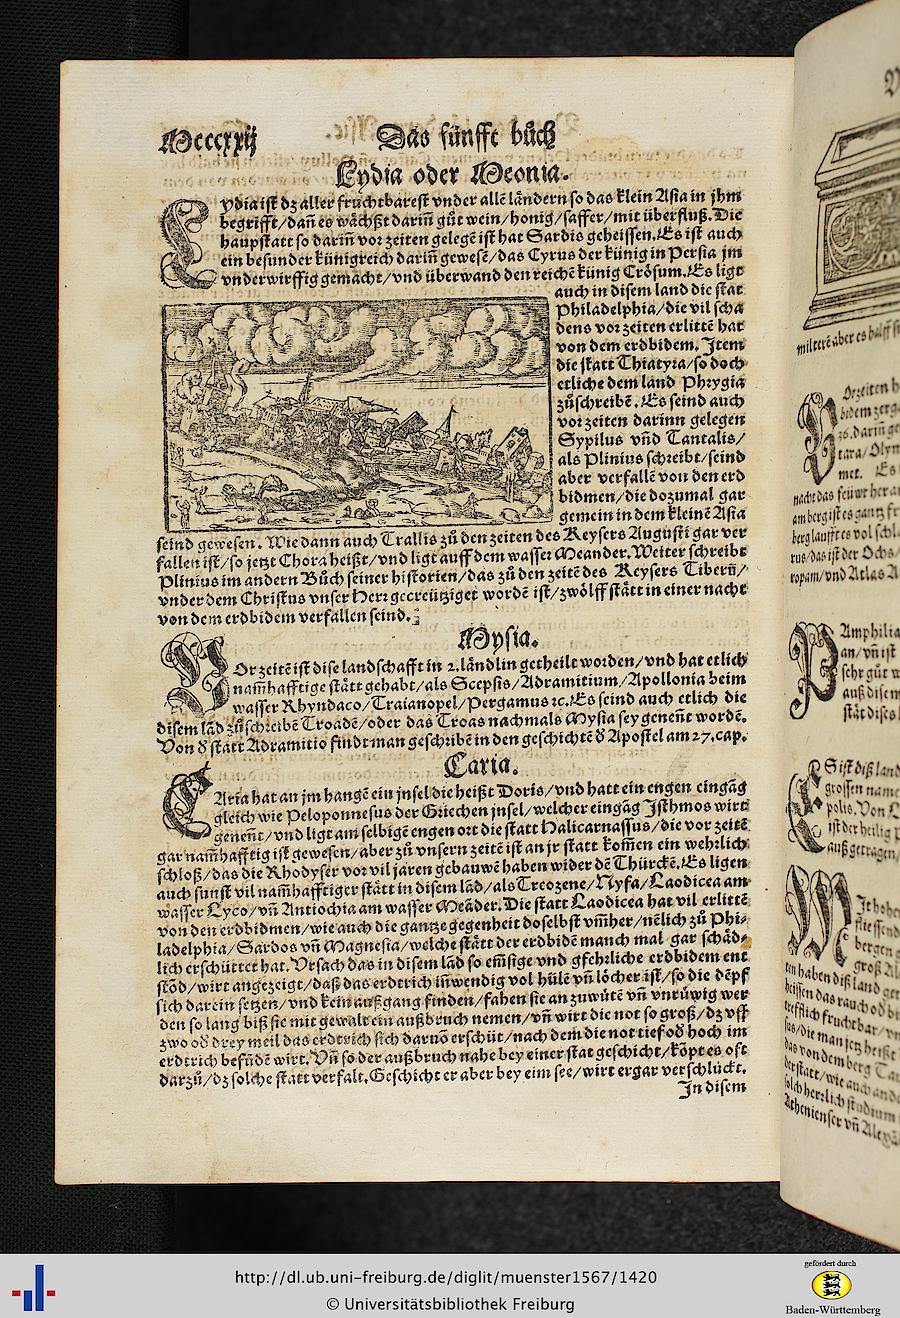 Mccccxxij Das fünfft bůch
Lydia oder Meonia.
Lydia ist dz aller fruchtbarest vnder allē ländern so das klein Asia in jhm
begrifft/dañ es wächßt dariñ gůt wein/honig/saffer/mit überfluß. Die
hauptstatt so dariñ vor zeiten gelegē ist hat Sardis geheissen. Es ist auch
ein besunder künigreich dariñ gewesē/das Cyrus der künig in Persia jm
vnderwirffig gemacht/vnd überwand den reichē künig Crösum. Es ligt
auch in disem land die stat
Philadelphia/die vil scha
dens vor zeiten erlittē hat
von dem erdbidem. Item
die statt Thiatyra/so doch
etliche dem land Phrygia
zůschreibē. Es seind auch
vor zeiten darinn gelegen
Sypilus vñd Tantalis/
als Plinius schreibt/seind
aber verfallē von den erd
bidmen/die dozumal gar
gemein in dem kleinē Asia
seind gewesen. Wie dann auch Trallis zů den zeiten des Keysers Augusti gar ver
fallen ist/so jetzt Chora heißt/vnd ligt auff dem wasser Meander. Weiter schreibt
Plinius im andern Bůch seiner historien/das zů den zeitē des Keysers Tiberñ/
vnder dem Christus vnser Herr gecreütziget wordē ist/zwölff stätt in einer nacht
von dem erdbidem verfallen seind.
Mysia.
Vor zeitē ist dise landschafft in 2. ländlin getheilt worden/vnd hat etlich
nam̄hafftige stätt gehabt/als Scepsis/Adramitium/Apollonia beim
wasser Rhyndaco/Traianopel/Pergamus ꝛc. Es seind auch etlich die
disem lād zůschreibē Troadē/oder das Troas nachmals Mysia sey geneñt wordē.
Von d statt Adramitio findt man geschribē in den geschichtē d Apostel am 27. cap.
Caria.
Caria hat an jm hangē ein jnsel die heißt Doris/vnd hatt ein engen eingāg
gleich wie Peloponnesus der Griechen jnsel/welcher eingāg Isthmos wirt
geneñt/vnd ligt am selbigē engen ort die statt Halicarnassus/die vor zeitē
gar nam̄hafftig ist gewesen/aber zů vnsern zeitē ist an jr statt kom̄en ein wehrlich
schloß/das die Rhodyser vor vil jaren gebauwē haben wider dē Thürckē. Es ligen
auch sunst vil nam̄hafftiger stätt in disem lād/als Treozene/Nysa/Laodicea am
wasser Lyco/vñ Antiochia am wasser Meāder. Die statt Laodicea hat vil erlittē
von den erdbidmen/wie auch die gantze gegenheit doselbst vm̄her/nēlich zů Phi-
ladelphia/Sardos vñ Magnesia/welche stätt der erdbidē manch mal gar schäd-
lich erschüttet hat. Vrsach das in disem lād so em̄sige vnd gfehrliche erdbidem ent
stōd/wirt angezeigt/daß das erdtrich iñwendig vol hülē vñ löcher ist/so die dēpf
sich darein setzen/vnd kein außgang finden/fahen sie an zuwütē vñ vnrůwig wer
den so lang biß sie mit gewalt ein außbruch nemen/vñ wirt die not so groß/dz vff
zwo od drey meil das erdtrich sich daruō erschüt/nach dem die not tief od hoch im
erdtrich befůdē wirt. Vñ so der außbruch nahe bey einer stat geschicht/kōpt es oft
darzů/dz solche statt verfalt. Geschicht er aber bey eim see/wirt er gar verschluckt.
In disem
http://dl.ub.uni-freiburg.de/diglit/muenster1567/1420
© Universitätsbibliothek Freiburg
gefördert durch
Baden-Württemberg